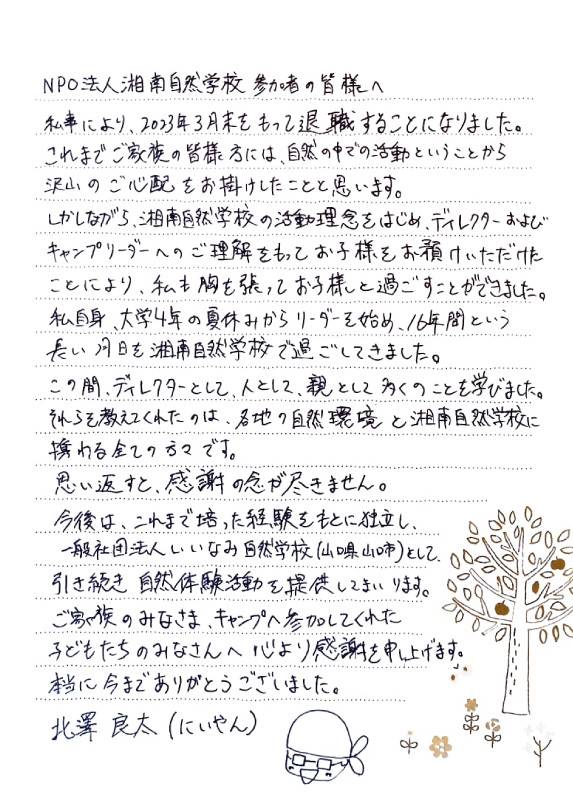 NPO法人湘南自然学校 参加者の皆様へ
私事により、2023年3月末をもって退職することになりました。
これまでご家族の皆様方には、自然の中での活動ということから
沢山のご心配をお掛けしたことと思います。
しかしながら、湘南自然学校の活動理念をはじめ、ディレクターおよび
キャンプリーダーへのご理解をもってお子様をお預けいただけた
ことにより、私も胸を張ってお子様と過ごすことができました。
私自身、大学4年の夏休みからリーダーを始め、16年間という
長い月日を湘南自然学校で過ごしてきました。
この間、ディレクターとして、人として、親として多くのことを学びました。
それらを教えてくれたのは、各地の自然環境と湘南自然学校に
携わる全ての方々です。
思い返すと、感謝の念が尽きません。
今後は、これまで培った経験をもとに独立し、
一般社団法人いいなみ自然学校(山口県山口市)として、
引き続き自然体験活動を提供してまいります。
ご家族のみなさま、キャンプへ参加してくれた
子どもたちのみなさんへ心より感謝を申し上げます。
本当に今までありがとうございました。
北澤 良太(にいやん)